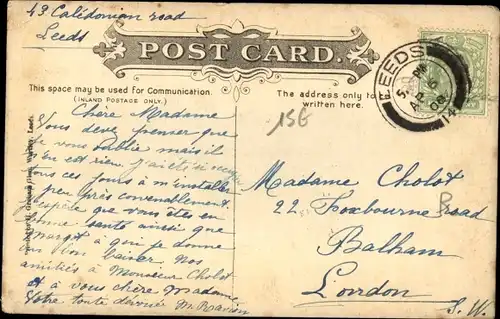 43 Calédonian road
Leeds
POST CARD.
This space may be used for Communication.
(INLAND POSTAGE ONLY.)
The address only to
written here.
LEEDS
5. PM
AP 6
08
14
156
Chère Madame
Vous devez penser que
je vous oublie mais il
en est rien. J'ai été si
tous ces jours à m'installer
peu près convenablement.
J'espère que vous êtes en
bonne santé ainsi que
Margot à qui je donne
un bon baiser. Nos
amitiés à Monsieur Cholot
et à vous chère Madame
Votre toute dévouée M.
Madame Cholot
22 Foxbourne road
Balham
London
S. W.